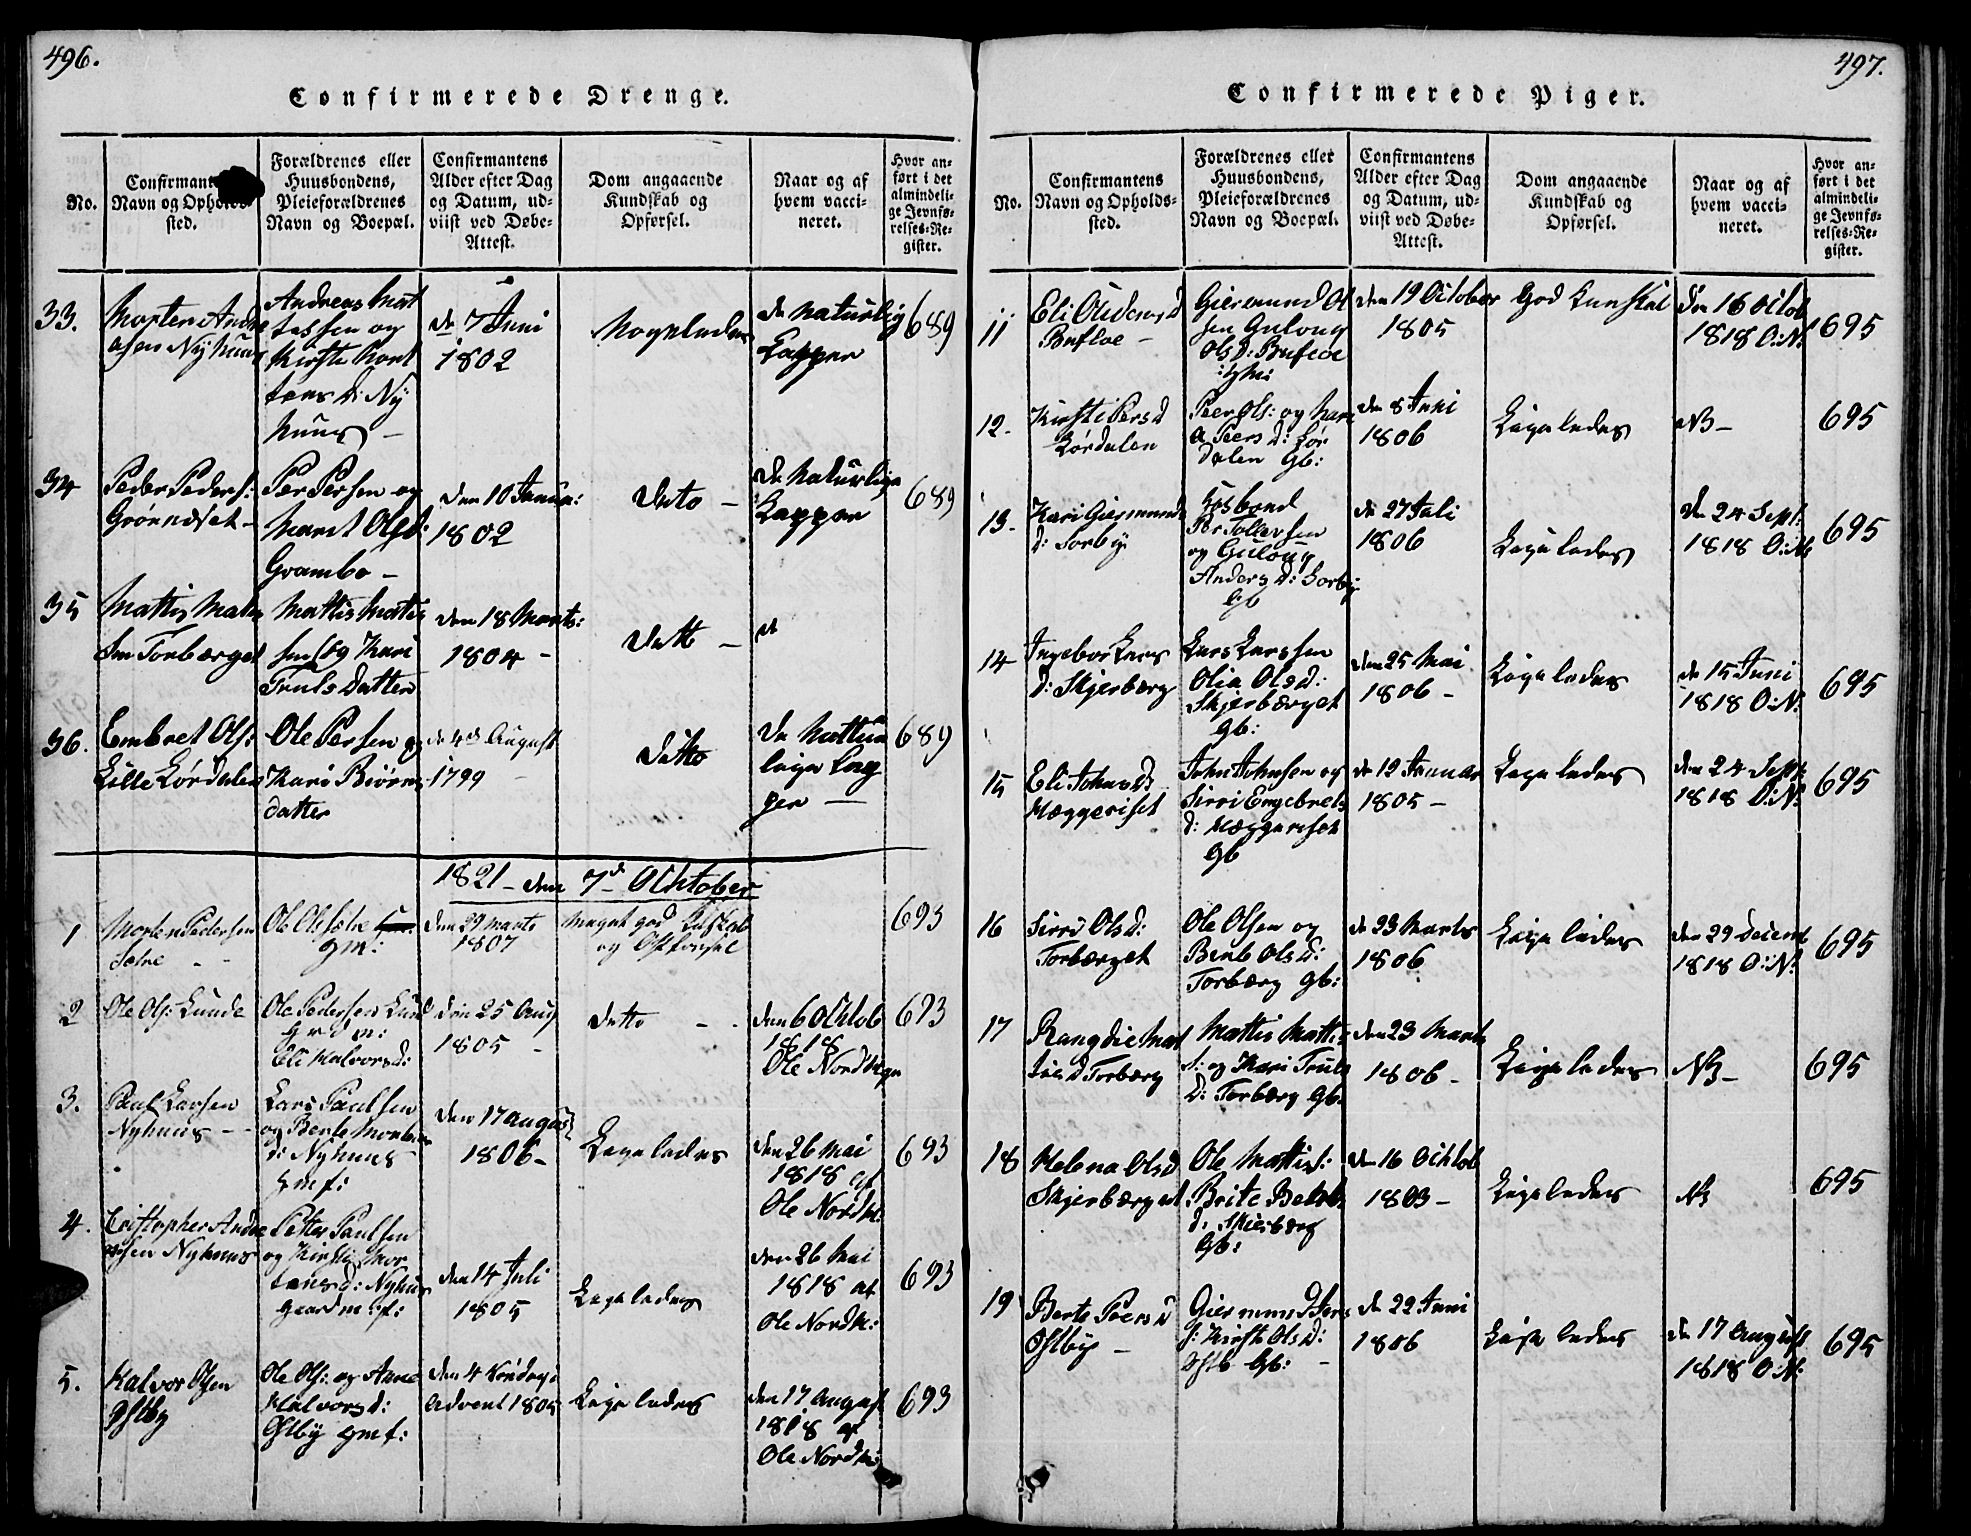 496.
Confirmerede Drenge.
No.
Confirmant
Navn og Ophold
sted.
Forældrenes eller
Huusbondens,
Pleieforældrenes
Navn og Boepæl.
Confirmantens
Alder efter Dag
og Datum, ud-
viist ved Døbe-
Attest.
Dom angaaende
Kundskab og
Opførsel.
Naar og af
hvem vacci-
neret.
Hvor an-
ført i det
almindeli-
ge Jevnfø-
relses-Re-
gister.
33.
Morten Andre
asen Nyhuus
Andreas Mort
tessen og
Kirste Mort
tens D: Ny
huus –
de 7 Juni
1802
Nogeledes
de naturlig
Kopper
689
34
Peder Peders:
Grønneset –
Per Persen og
Marit Olsd:
Grambo –
den 10 Janua:
1802
Detto –
de naturlige
Kopper
689
35
Mattis Matis
Sen Torberget
Mattis Matis
sen og Kari
Truls Datter
den 18 Marts:
1804 –
Dett –
36.
Embret Ols:
Lille Lørdalen
Ole Persen og
Kari Biørns
datter
de 4de August
1799 –
Ditto
De Nattur
lige Cop
per –
689
1821 – den 7d Ochtober
1
Morten Pedersen
Sætre – –
Ole Ols Sætre
gm:
den 29 marts
1807
Meget god Kuskab
og Opførsel
693
2
Ole Ols: Lunde
Ole Pedersen Lund
Eli Halvorsd:
den 25 Aug
1805 –
detto – –
den 6 Ochtob
1818
Ole Nordhagn
693
3.
Paul Larsen
Nyhuus – –
Lars Paulsen
og Berte Morten
d: Nyhuus
gmf:
den 17 august
1806 –
Ligeledes
den 26 Mai
1818 af
Ole Nordh:
693
4.
Cristopher Andre
asen Nyhuus
Petter Paulsen
og Kirsti Mor
tensd: Nyhus
gaardm:f:
den 14 Juli
1805
Ligeledes
den 26 Mai
1818 af
Ole Nordh:
693
5.
Halvor Olsen
Østby
Ole Ols: og Anne
Halvorsd:
Østby gmf:
den 4 Søndag i
Advent 1805
Ligeledes
den 17 August
1818 af
Ole Nordh:
693
497.
Confirmerede Piger.
No.
Confirmantens
Navn og Opholds-
sted.
Forældrenes eller
Huusbondens,
Pleieforældrenes
Navn og Boepæl.
Confirmantens
Alder efter Dag
og Datum, ud-
viist ved Døbe-
Attest.
Dom angaaende
Kundskab og
Opførsel.
Naar og af
hvem vacci-
neret.
Hvor an-
ført i det
almindeli-
ge Jevnfø-
relses-Re-
gister.
11
Eli Oudensd
Bufloe –
Giermund Ol
sen Gulong
Olsd: Bufloe
den 19 October
1805
God Kunskab
den 16 Octob
1818 O:N:
695
12.
Kirsti Persd
Lørdalen
Peer Ols: og Mari
a Peers d: Lør
dalen Gb:
den 8 Juni
1806
Ligeledes
NB –
695
13.
Kari Giermunds
d: Sorby
Hosbond
Per Tollevsen
og Gulong
Anders D: Sorby
Gb
de 27 Juli
1806
Ligeledes
den 24 Sept:
1818 O:N
695
14
Ingebor Lars
d: Skjerberg
Lars Larssen
Olia Olsd:
Skjerberget
Gb:
den 25 Mai
1806 –
Ligeledes
de 15 Juni
1818 O:N:
695
15
Eli Johnsd
Heggeriset
John Johnsen og
Sirri Engebrets
d: Heggeriset
Gb
de 12 Januar
1805 –
Ligeledes
den 24 Sept:
1818 O:N:
695
16
Sirri Olsd:
Torberget
Ole Olsen og
Berit Olsd:
Torberg Gb:
de 23 Marts
1806
Ligeledes
den 29 Decemb
1818 O:N:
695
17
Rangdie Mat
tisd Torberg
Mattis Matti
s: og Kari Truls
D: Torberg Gb.
den 23 Marts
1806 –
Ligeledes
NB –
695
18
Helena Olsd
Skjerberget
Ole Mattis:
Brite
d: Skierberg
Gb:
den 16 Ochtob
1803 –
Ligeledes
NB
695
19
Berte Peersd
Østby –
Giermund Pers
s: Kirsti Olsd:
Østb Gb: –
de 22 Juni
1806
Ligeledes
den 17 August
1818 O:N:
695